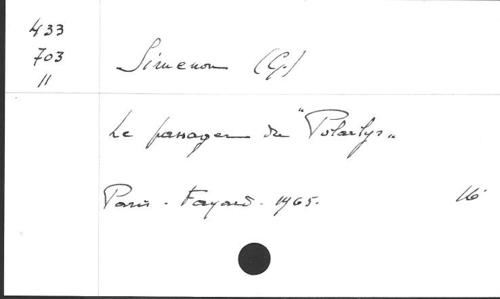 433
703
11
Simenon (G.)
Le passager du "Polarlys"
Paris - Fayard - 1965.
16°